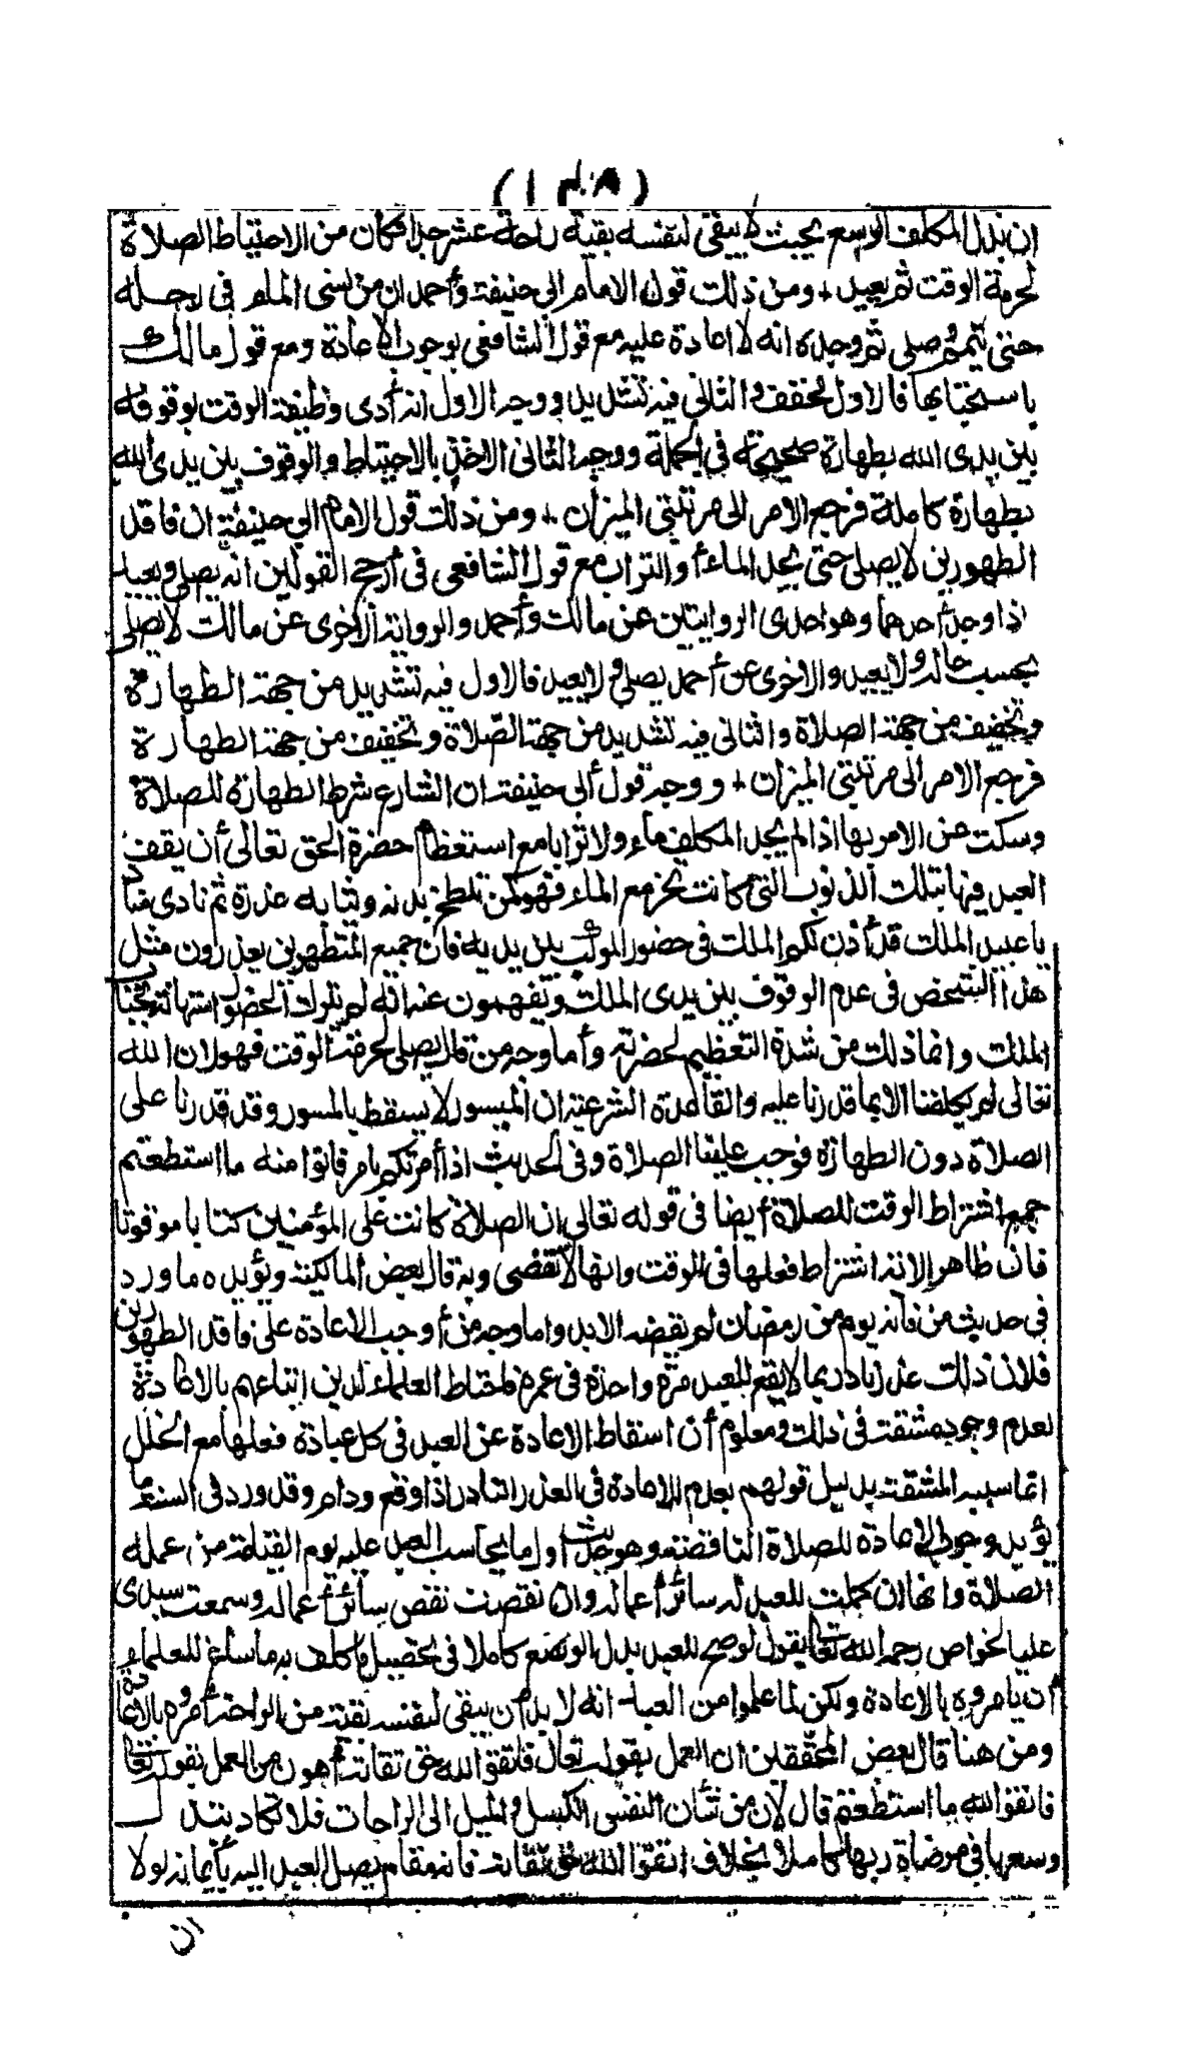 (١٣٨)
ان بذل المكلف الوسع بحيث لا يبقى لنفسه بقية راحة عسر جدا فكان من الاحتياط الصلاة
لحرمة الوقت ثم يعيد + ومن ذلك قول الامام ابى حنيفة وأحمد ان من نسى الماء فى رحله
حتى تيمم وصلى ثم وجده انه لا اعادة عليه مع قول الشافعى بوجوب الاعادة ومع قول مالك
باستحبابها فالاول مخفف والثانى فيه تشديد ووجه الاول انه أدى وظيفة الوقت بوقوفه
بين يدى الله بطهارة صحيحة فى الجملة ووجه الثانى الاخذ بالاحتياط والوقوف بين يدى الله
بطهارة كاملة فرجع الامر الى مرتبتى الميزان + ومن ذلك قول الامام ابى حنيفة ان فاقد
الطهورين لا يصلى حتى يجد الماء أو التراب مع قول الشافعى فى أرجح القولين انه يصلى ويعيد
اذا وجد أحدهما وهو احدى الروايتين عن مالك وأحمد والرواية الاخرى عن مالك لا يصلى
بحسب حاله ولا يعيد والاخرى عن أحمد يصلى ولا يعيد فالاول فيه تشديد من جهة الطهارة
وتخفيف من جهة الصلاة والثانى فيه تشديد من جهة الصلاة وتخفيف من جهة الطهارة
فرجع الامر الى مرتبتى الميزان + ووجه قول أبى حنيفة ان الشارع شرط الطهارة للصلاة
وسكت عن الامر بها اذا لم يجد المكلف ماء ولا ترابا مع استعظام حضرة الحق تعالى أن يقف
العبد فيها بتلك الذنوب التى كانت تخر مع الماء فهو كمن تلطخ بدنه وثيابه عذرة ثم نادى مناد
يا عبيد الملك قد أذن لكم الملك فى حضور الموكب بين يديه فان جميع المتطهرين يعذرون مثل
هذا الشخص فى عدم الوقوف بين يدى الملك ويفهمون عنه انه لم يترك الحضور استهانة بجناب
الملك وانما ذلك من شدة التعظيم لحضرته وأما وجه من قال يصلى لحرمة الوقت فهو لان الله
تعالى لم يكلفنا الا بما قدرنا عليه والقاعدة الشرعية ان الميسور لا يسقط بالمعسور وقد قدرنا على
الصلاة دون الطهارة فوجب علينا الصلاة وفى الحديث اذا أمرتكم بامر فاتوا منه ما استطعتم
جمع اشتراط الوقت للصلاة أيضا فى قوله تعالى ان الصلاة كانت على المؤمنين كتابا موقوتا
فان ظاهر الاية اشتراط فعلها فى الوقت وانها لا تقضى وبه قال بعض المالكية ويؤيده ما ورد
فى حديث من فاته يوم من رمضان لم يقضه الابد واما وجه من أوجب الاعادة على فاقد الطهورين
فلان ذلك عذر نادر ربما لا يقع للعبد مرة واحدة فى عمره فاحتاط العلماء لدين اتباعهم بالاعادة
لعدم وجود مشقة فى ذلك ومعلوم أن اسقاط الاعادة عن العبد فى كل عبادة فعلها مع الخلل
انما سببه المشقة بدليل قولهم بعدم الاعادة فى العذر النادر اذا وقع ودام وقد ورد فى السنة ما
يؤيد وجوب الاعادة للصلاة الناقصة وهو حديث أول ما يحاسب العبد عليه يوم القيامة من عمله
الصلاة وانها ان كملت للعبد له سائر أعماله وان نقصت نقص سائر أعماله وسمعت سيدى
عليا الخواص رحمه الله تعالى يقول لو صح للعبد بذل الوسع كاملا فى تحصيل ما كلف به ما ساغ للعلماء
أن يامروه بالاعادة ولكن لما علموا من العبد انه لا بد أن يبقى لنفسه بقية من الراحة أمروه بالاعادة
ومن هنا قال بعض المحققين ان العمل بقوله تعالى فاتقوا الله حق تقاته أهون من العمل بقوله تعالى
فاتقوا الله ما استطعتم قال لان من شأن النفس الكسل والميل الى الراحات فلا تكاد يبذل
وسعها فى مرضاة ربها كاملا بخلاف اتقوا الله حق تقاته فانه مقام يصل العبد اليه بأيمانه لولا
ان